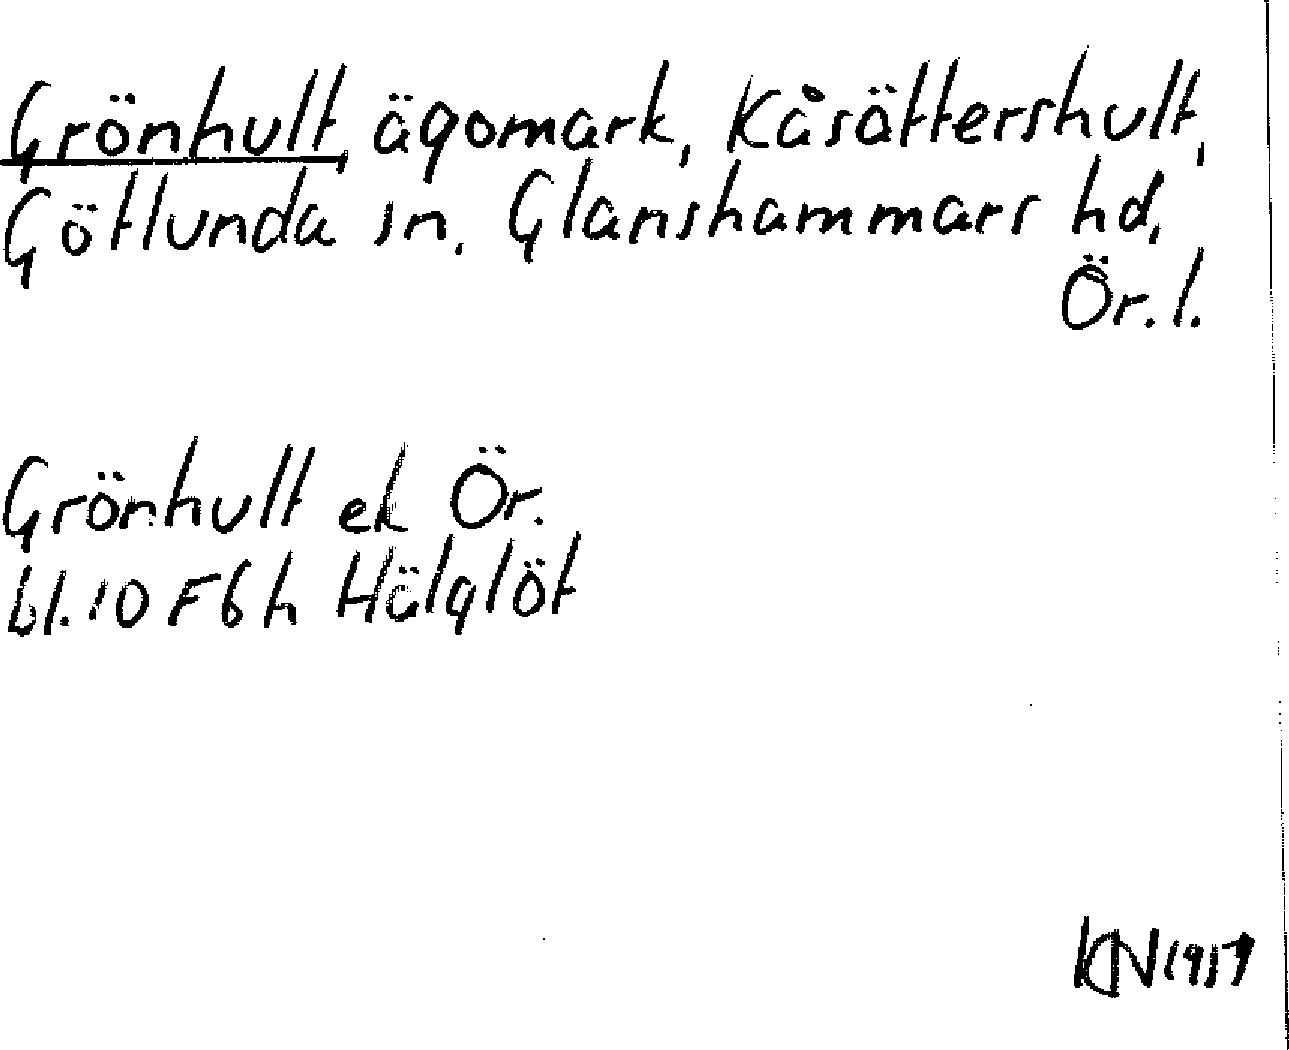 Grönhult, ägomark, Kåsättershult,
Götlunda sn, Glanshammars hd,
Ör. l.
Grönhult ek Ör.
bl. 10 F 6 h Hälglöt